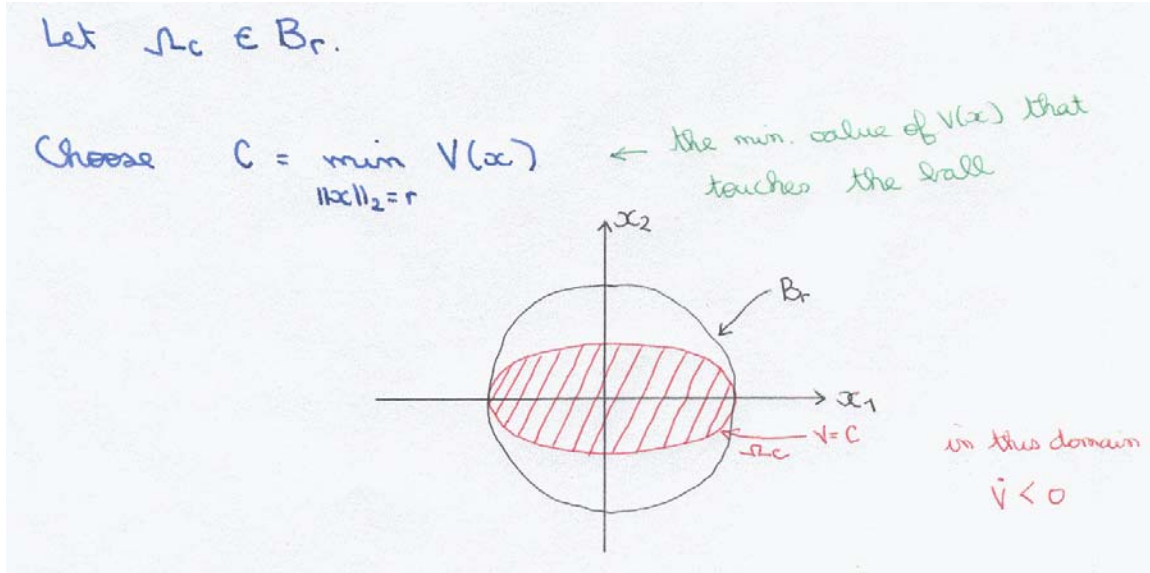 Let Ω_c ∈ B_r.
Choose C = min V(x) ← the min. value of V(x) that
||x||_2 = r touches the ball
x_2
B_r
x_1
V = C
Ω_c
in this domain
V̇ < 0